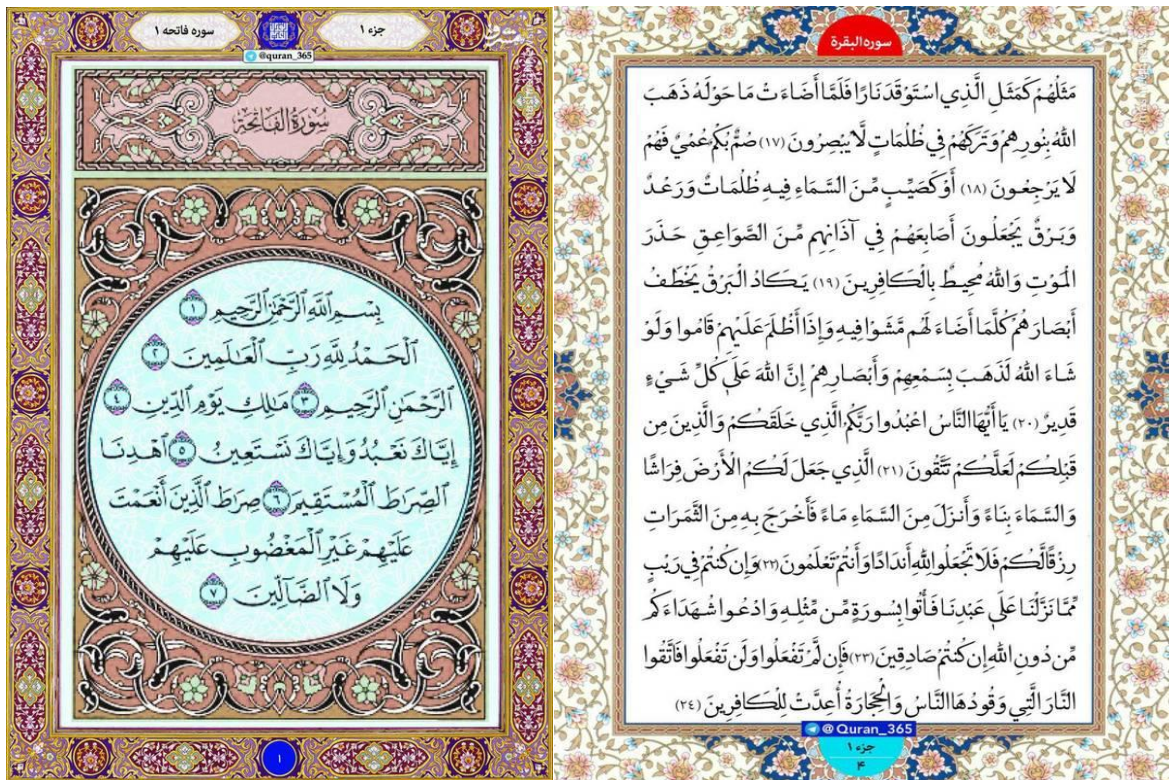 جزء ۱
سوره فاتحه ۱
@quran_365
سُورَةُ الفَاتِحَةِ
بِسْمِ ٱللَّهِ ٱلرَّحْمَٰنِ ٱلرَّحِيمِ ١
ٱلْحَمْدُ لِلَّهِ رَبِّ ٱلْعَٰلَمِينَ ٢
ٱلرَّحْمَٰنِ ٱلرَّحِيمِ ٣ مَٰلِكِ يَوْمِ ٱلدِّينِ ٤
إِيَّاكَ نَعْبُدُ وَإِيَّاكَ نَسْتَعِينُ ٥ ٱهْدِنَا
ٱلصِّرَٰطَ ٱلْمُسْتَقِيمَ ٦ صِرَٰطَ ٱلَّذِينَ أَنْعَمْتَ
عَلَيْهِمْ غَيْرِ ٱلْمَغْضُوبِ عَلَيْهِمْ
وَلَا ٱلضَّآلِّينَ ٧
۱
سوره البقرة
مَثَلُهُمْ كَمَثَلِ الَّذِي اسْتَوْقَدَ نَارًا فَلَمَّا أَضَاءَتْ مَا حَوْلَهُ ذَهَبَ
اللَّهُ بِنُورِهِمْ وَتَرَكَهُمْ فِي ظُلُمَاتٍ لَّا يُبْصِرُونَ (١٧) صُمٌّ بُكْمٌ عُمْيٌ فَهُمْ
لَا يَرْجِعُونَ (١٨) أَوْ كَصَيِّبٍ مِّنَ السَّمَاءِ فِيهِ ظُلُمَاتٌ وَرَعْدٌ
وَبَرْقٌ يَجْعَلُونَ أَصَابِعَهُمْ فِي آذَانِهِم مِّنَ الصَّوَاعِقِ حَذَرَ
الْمَوْتِ وَاللَّهُ مُحِيطٌ بِالْكَافِرِينَ (١٩) يَكَادُ الْبَرْقُ يَخْطَفُ
أَبْصَارَهُمْ كُلَّمَا أَضَاءَ لَهُم مَّشَوْا فِيهِ وَإِذَا أَظْلَمَ عَلَيْهِمْ قَامُوا وَلَوْ
شَاءَ اللَّهُ لَذَهَبَ بِسَمْعِهِمْ وَأَبْصَارِهِمْ إِنَّ اللَّهَ عَلَىٰ كُلِّ شَيْءٍ
قَدِيرٌ (٢٠) يَا أَيُّهَا النَّاسُ اعْبُدُوا رَبَّكُمُ الَّذِي خَلَقَكُمْ وَالَّذِينَ مِن
قَبْلِكُمْ لَعَلَّكُمْ تَتَّقُونَ (٢١) الَّذِي جَعَلَ لَكُمُ الْأَرْضَ فِرَاشًا
وَالسَّمَاءَ بِنَاءً وَأَنزَلَ مِنَ السَّمَاءِ مَاءً فَأَخْرَجَ بِهِ مِنَ الثَّمَرَاتِ
رِزْقًا لَّكُمْ فَلَا تَجْعَلُوا لِلَّهِ أَندَادًا وَأَنتُمْ تَعْلَمُونَ (٢٢) وَإِن كُنتُمْ فِي رَيْبٍ
مِّمَّا نَزَّلْنَا عَلَىٰ عَبْدِنَا فَأْتُوا بِسُورَةٍ مِّن مِّثْلِهِ وَادْعُوا شُهَدَاءَكُم
مِّن دُونِ اللَّهِ إِن كُنتُمْ صَادِقِينَ (٢٣) فَإِن لَّمْ تَفْعَلُوا وَلَن تَفْعَلُوا فَاتَّقُوا
النَّارَ الَّتِي وَقُودُهَا النَّاسُ وَالْحِجَارَةُ أُعِدَّتْ لِلْكَافِرِينَ (٢٤)
@Quran_365
جزء ۱
۴